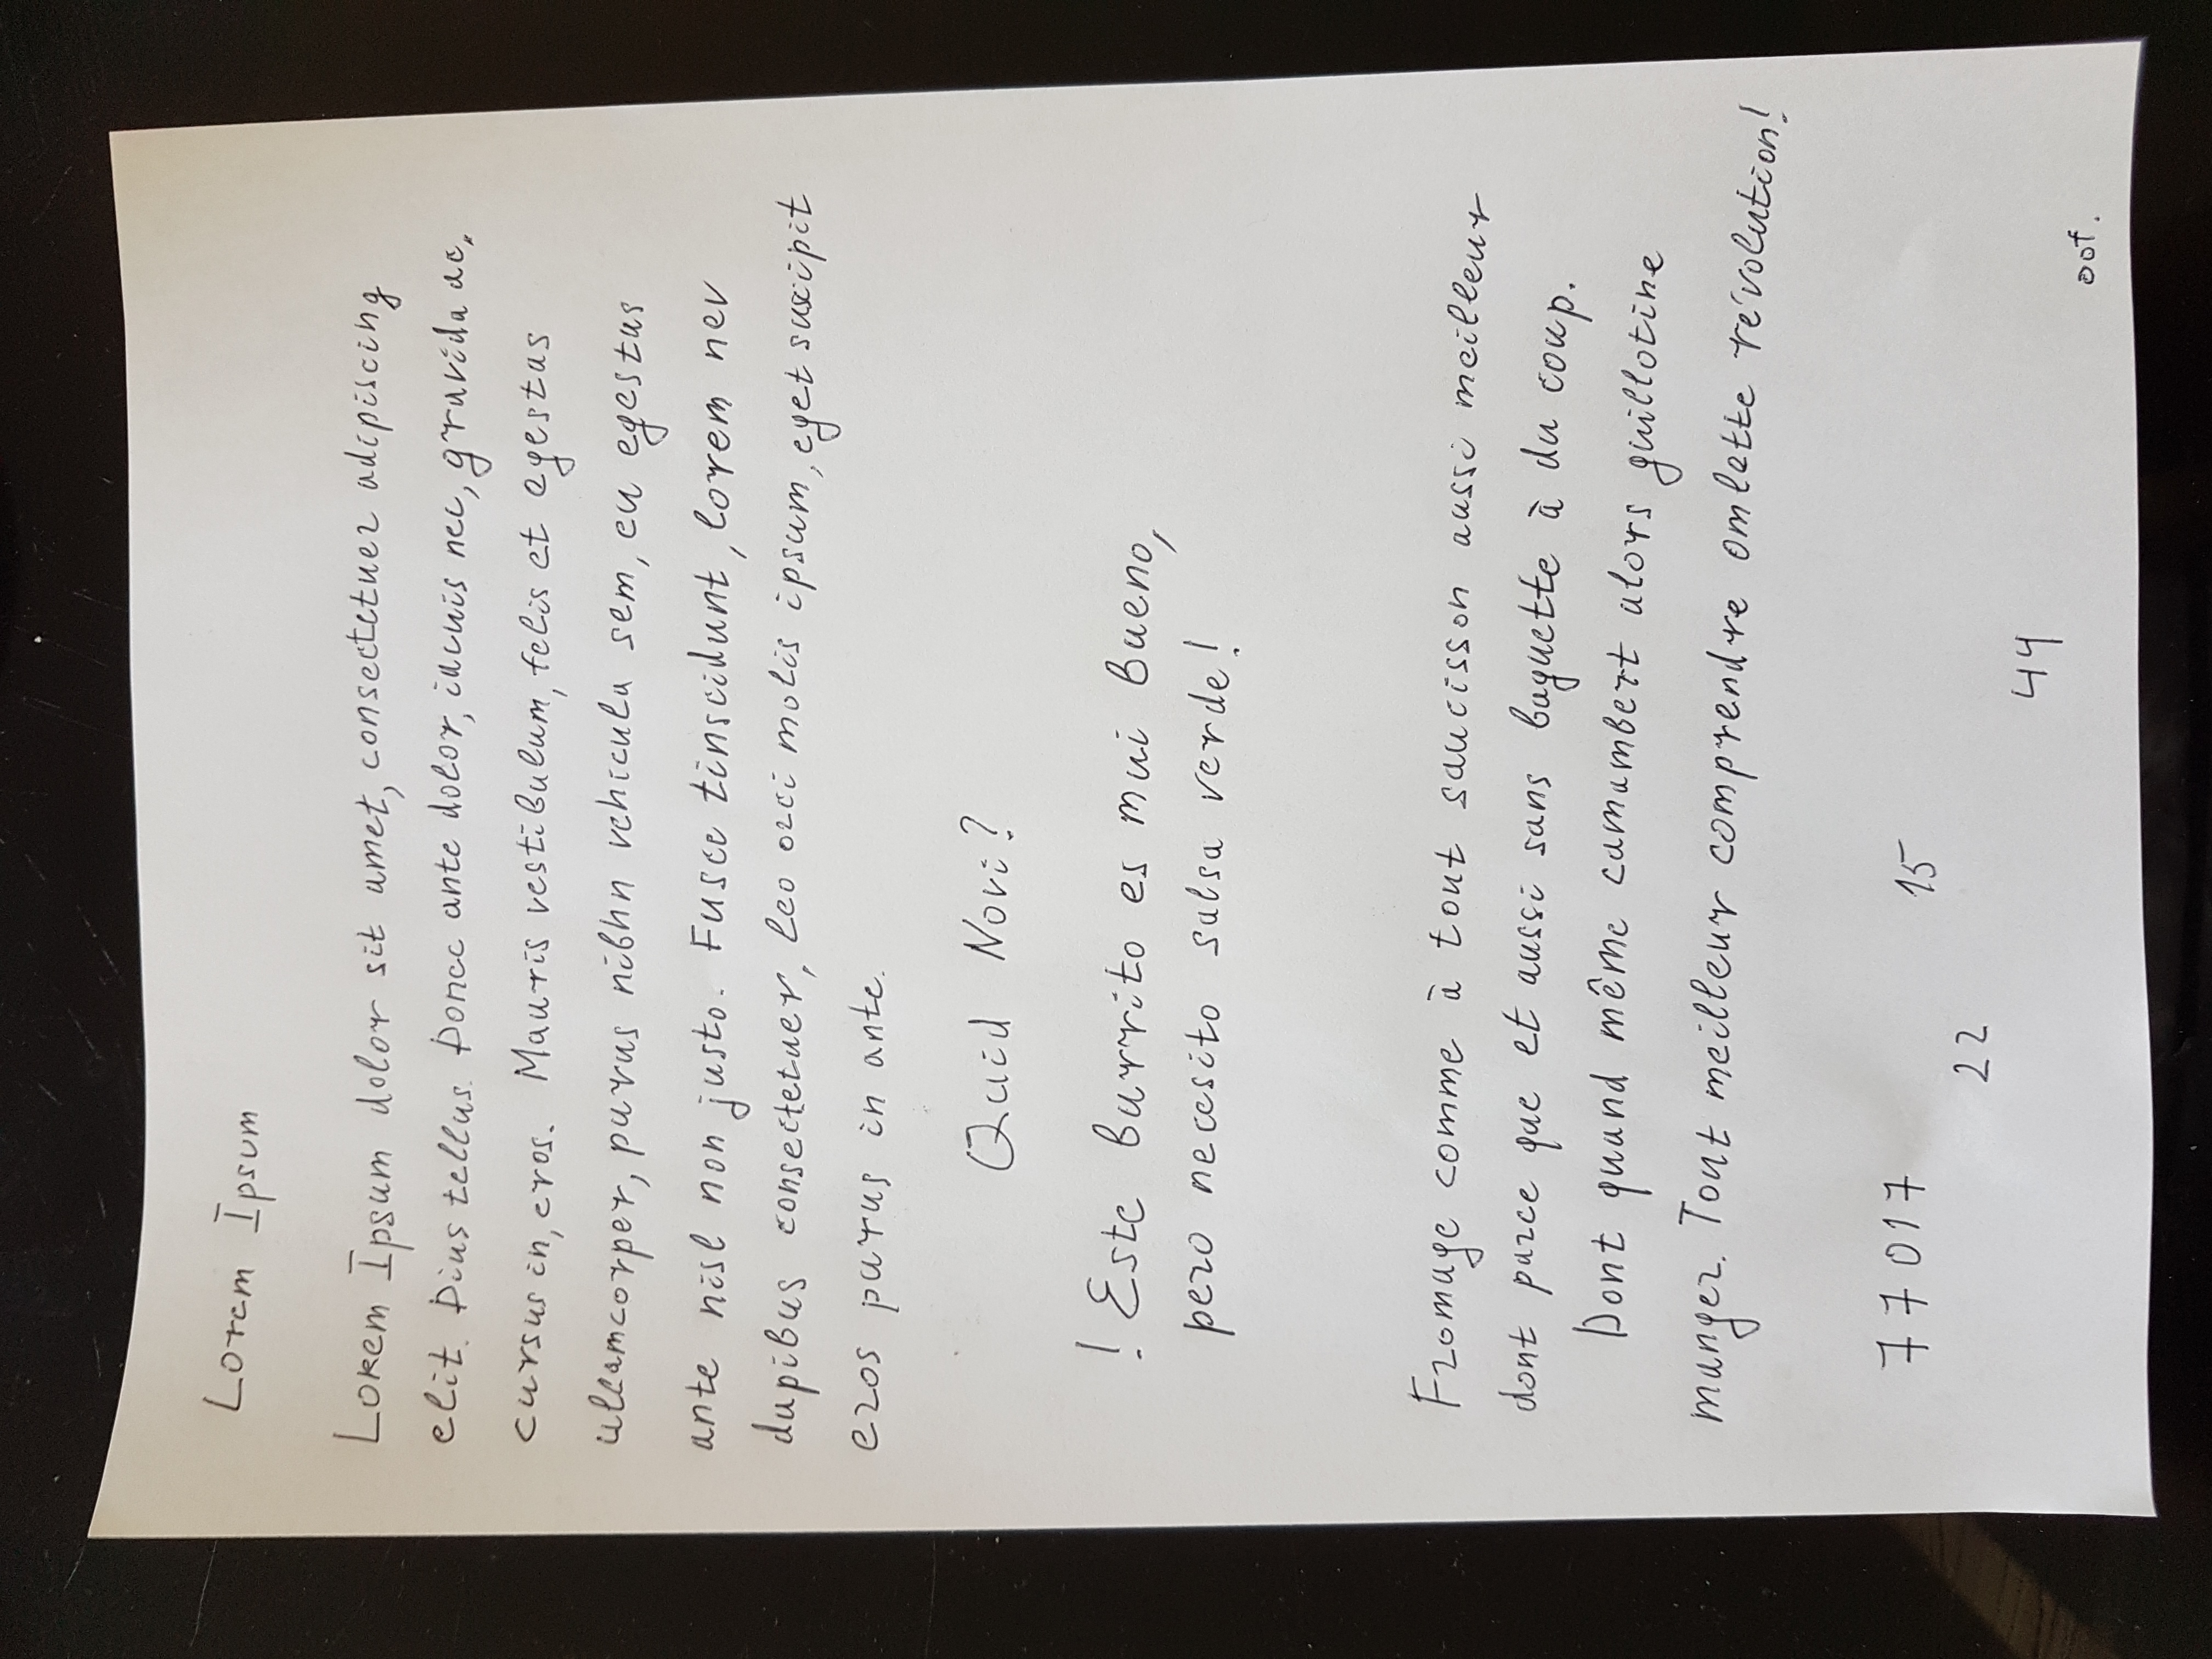 Lorem Ipsum
Lorem Ipsum dolor sit amet, consectetuer adipiscing
elit. Dius tellus. Donec ante dolor, iacuis nec, gravida ac,
cursus in, eros. Mauris vestibulum, felis et egestas
ullamcorper, purus nibhn vehicula sem, eu egestas
ante nisl non justo. Fusce tinscidunt, lorem nev
dapibus consectetuer, leo orci molis ipsum, eget suscipit
eros purus in ante.
Quid Novi?
! Este burrito es mui bueno,
pero necesito salsa verde!
Fromage comme à tout saucisson aussi meilleur
dont parce que et aussi sans baguette à du coup.
Dont quand même camambert alors guillotine
manger. Tout meilleur comprendre omlette révolution!
77017
15
22
44
oof.